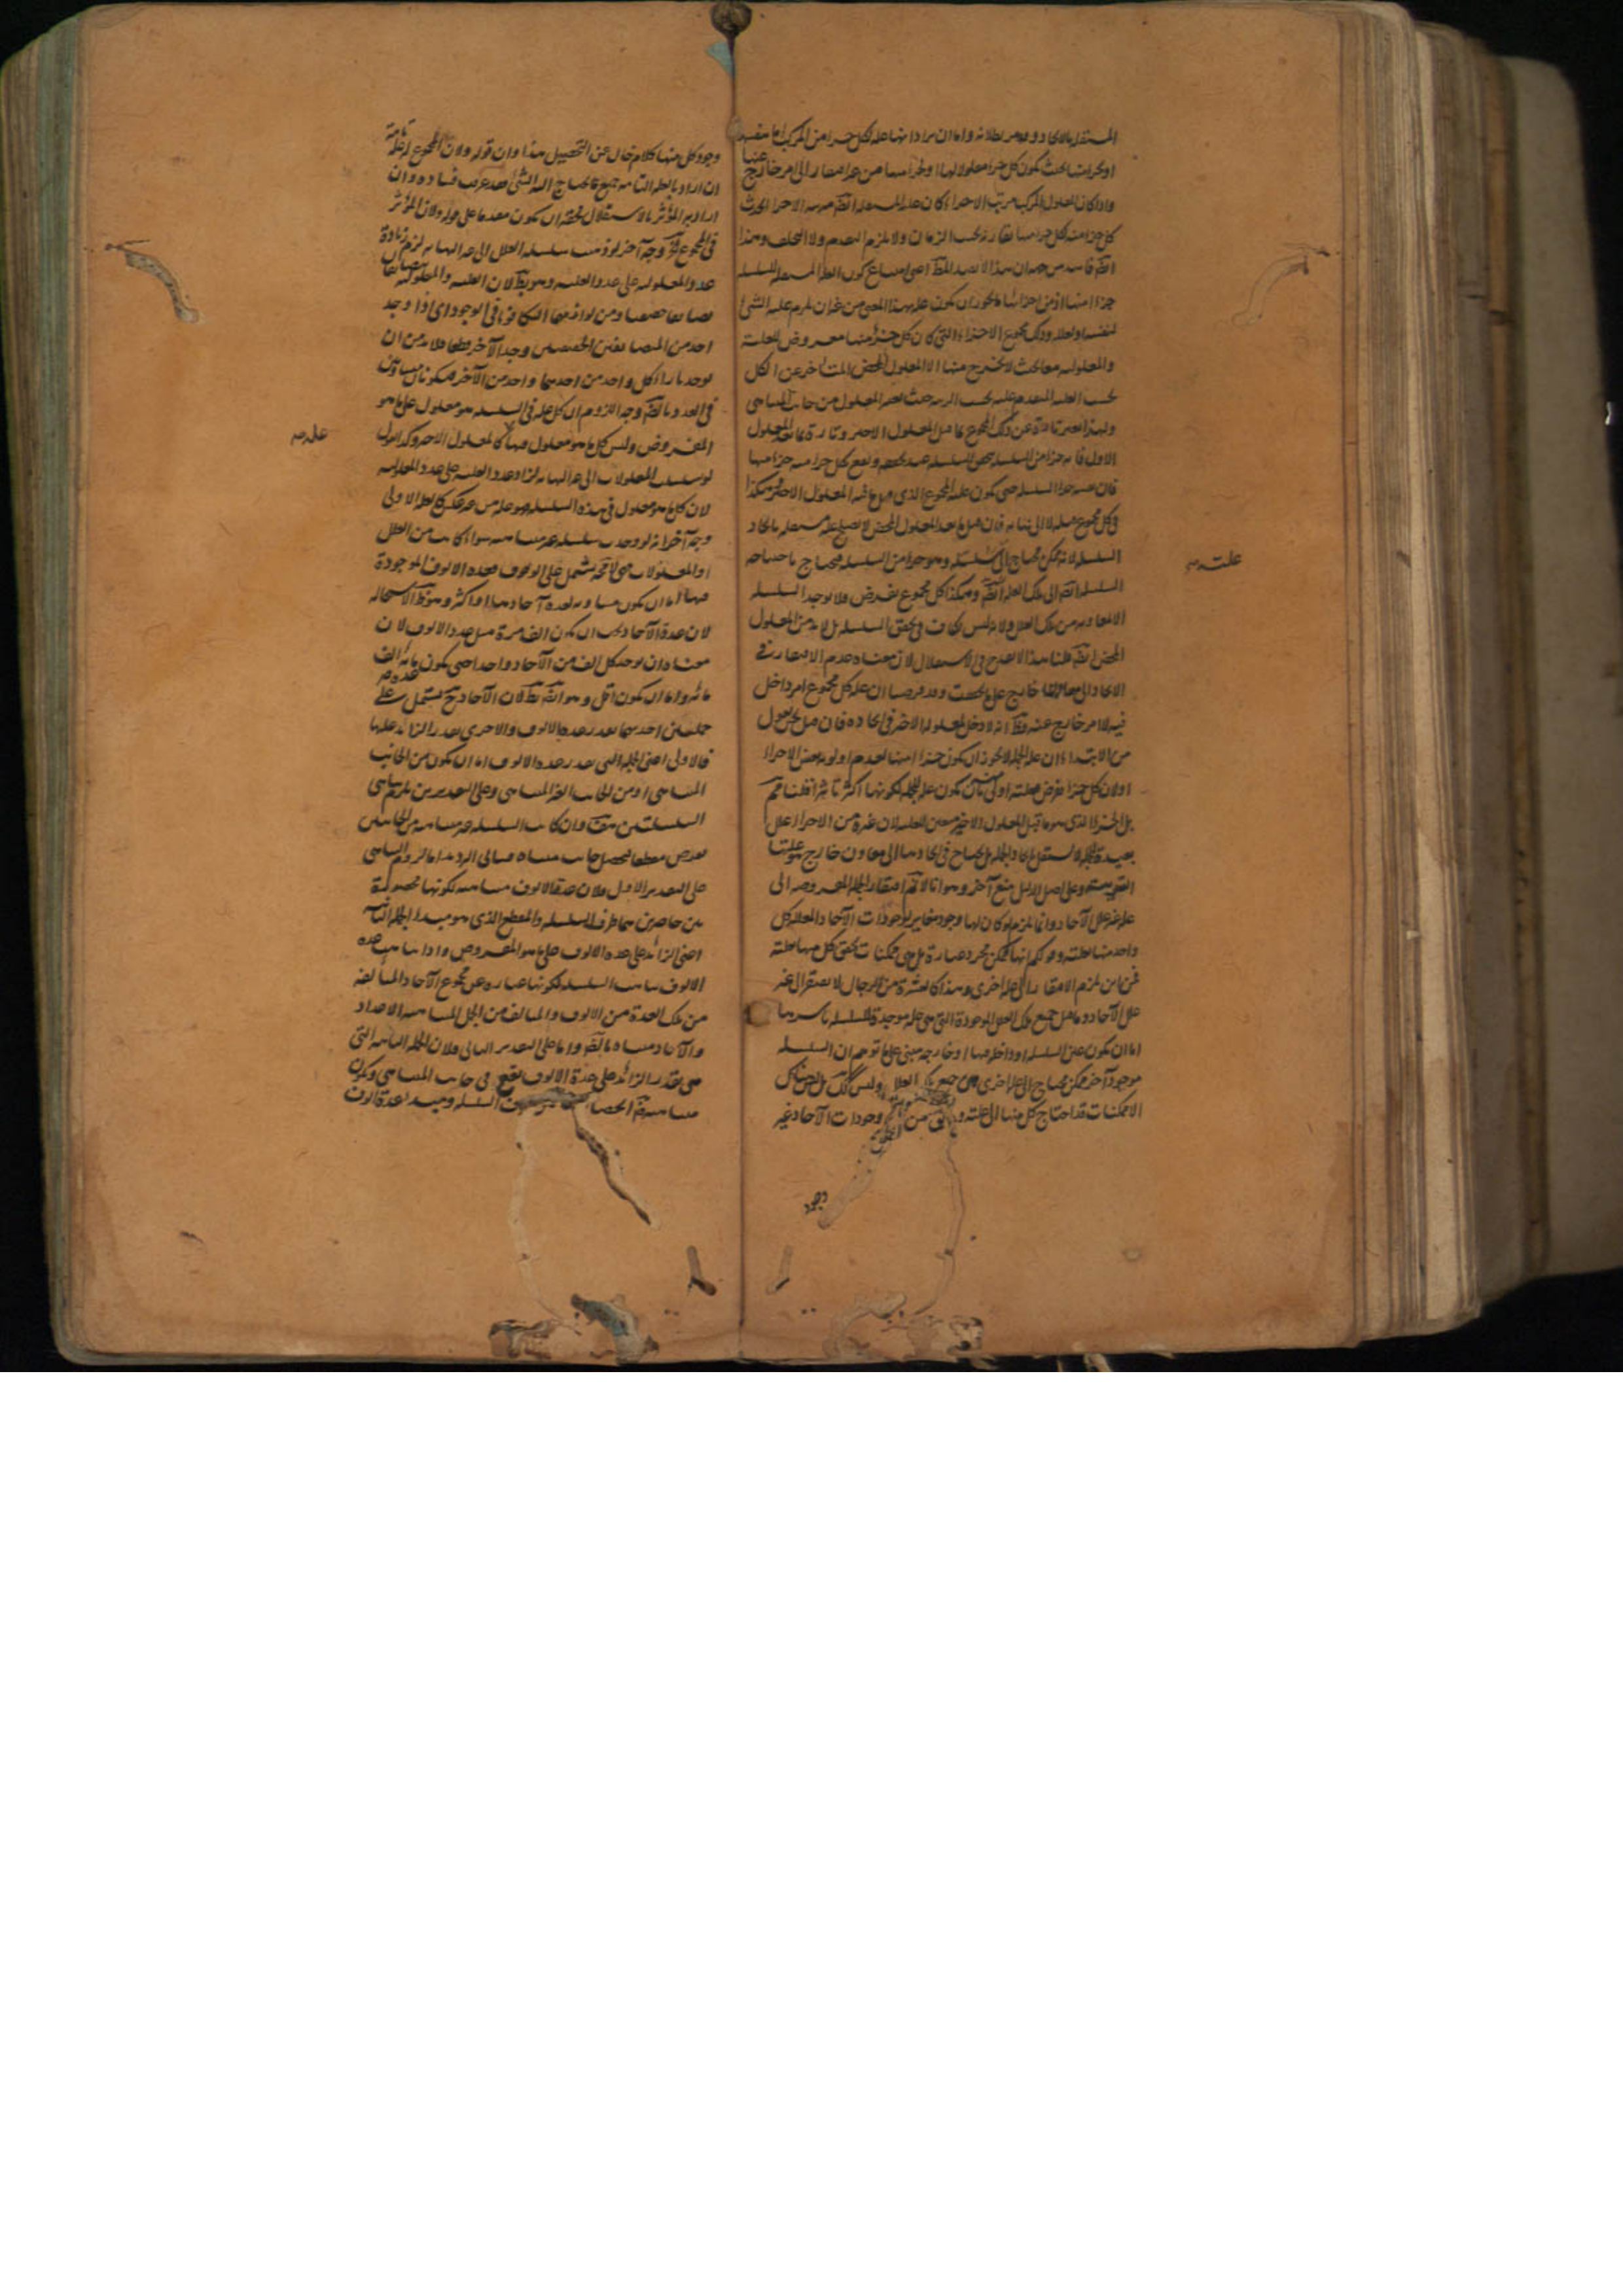 المستقل بالايجاد وقد مر بطلانه واما ان يراد انها علة لكل جزء من المركب اما بنفسها
او بجزء منها بحيث يكون كل جزء معلولا لها او لجزء منها من غير افتقار الى امر خارج عنها
واذا كان المعلول المركب مرتب الاجزاء كان علته المستقلة ايضا مرتبة الاجزاء يحدث
كل جزء منه بكل جزء منها يقارنه بحسب الزمان ولا يلزم التقدم ولا التخلف وهذا
ايضا فاسد من جهة ان هذا لا يفيد المط اعنى امتناع كون العلة المستقلة للسلسلة
جزءا منها اذ من اجزائها ما يجوز ان يكون علة بهذا المعنى من غير ان يلزم علية الشئ
لنفسه ولعلله وذلك مجموع الاجزاء التى كان كل جزء منها معروض للعلية
والمعلولية معا بحيث لا يخرج منها الا المعلول المحض المتأخر عن الكل
بحسب العلية المتقدم عليه بحسب الرتبة حيث يعتبر المعلول من جانب المتناهى
ولهذا يعبر تارة عن ذلك المجموع بما قبل المعلول الاخير وتارة بما بعد المعلول
الاول فانه جزء من السلسلة يتحقق السلسلة عند تحققه ويقع بكل جزء منه جزء منها
فى كل مجموع قبله لا الى نهاية فان قيل ما بعد المعلول المحض لا يصلح علة مستقلة بايجاد
السلسلة لانه ممكن محتاج الى علته وهو جزء من السلسلة فيحتاج باحتياجه
السلسلة ايضا الى تلك العلة وهكذا كل مجموع يفرض فلا يوجد السلسلة
الا بمعاونة من تلك العلل ولانه ليس بكاف فى تحقق السلسلة بل لابد من المعلول
المحض ايضا قلنا هذا لا يقدح فى الاستقلال لان معناه عدم الافتقار فى
الايجاد الى معاون خارج على ما تحققت وقد فرضنا ان علة كل مجموع امر داخل
فيه لا امر خارج عنه وظ انه لا دخل لمعلوله الاخير فى ايجاده فان قيل نحن نقول
من الابتداء ان علة الجملة لا يجوز ان يكون جزءا منها لعدم اولوية بعض الاجزاء
او لان كل جزء يفرض فعلته اولى منه بان يكون علة للجملة لكونها اكثر تأثيرا قلنا مم
بل الجزء الذى هو ما قبل المعلول الاخير متعين للعلية لان غيره من الاجزاء علل
بعيدة للجملة لا يستقل بايجاد الجملة بل يحتاج فى ايجادها الى معاون خارج هو علتها
القريبة وعلى اصل الدليل منع آخر وهو انا لا نم افتقار الجملة المفروضة الى
علة غير علل الآحاد وانما يلزم لو كان لها وجود مغاير لوجودات الآحاد المعللة كل
واحد منها بعلته وقولكم انها ممكن مجرد عبارة بل هى ممكنات تحقق كل منها بعلته
فمن اين يلزم الافتقار الى علة اخرى وهذا كالعشرة من الرجال لا يفتقر الى غير
علل الآحاد وما قيل جميع تلك العلل الموجودة التى هى علة موجدة للسلسلة باسرها
اما ان يكون عين السلسلة او داخلة فيها او خارجة مبنى على ما توهم ان السلسلة
موجود آخر ممكن محتاج الى علة اخرى هى جميع تلك العلل وليس كذلك بل ليس هناك
الا ممكنات قد احتاج كل منها الى علته وجودات الآحاد غير
علته صح
وجود
وجود كل منها كلام خال عن التحصيل هذا وان قوله ولان المجموع له علة تامة
ان اراد بالعلة التامة جميع ما يحتاج اليه الشئ فقد عرفت فساده وان
اراد به المؤثر بالاستقلال فحقه ان يكون مقدما على قوله ولان المؤثر
فى المجموع الخ وجه آخر لو ذهبت سلسلة العلل الى غير النهاية لزم زيادة
عدد المعلولية على عدد العلية وهو بط لان العلية والمعلولية متضايفان
تضايفا حقيقيا ومن لوازمهما التكافؤ فى الوجود اى اذا وجد
احد من المتضايفين الحقيقيين وجد الآخر قطعا فلابد من ان
يوجد بازاء كل واحد من احدهما واحد من الآخر فيكونان متساويين
فى العدد بالضرورة وجه اللزوم ان كل علة فى السلسلة هو معلول على ما هو
المفروض وليس كل ما هو معلول فيها كالمعلول الاخير وكذا القول
لو تسلسلت المعلولات الى غير النهاية لزاد عدد العلية على عدد المعلولية
لان كل ما هو معلول فى هذه السلسلة فهو علة من غير عكس كالعلة الاولى
وجه آخر انه لو وجدت سلسلة غير متناهية سواء كانت من العلل
او المعلولات فهى لا محالة تشتمل على الوف فعدة الالوف الموجودة
فيها اما ان يكون مساوية لعدة آحادها او اكثر وهو ظ الاستحالة
لان عدة الآحاد يجب ان يكون الف مرة مثل عدد الالوف لان
معناه ان يوجد كل الف من الآحاد واحدا حتى يكون عدة مائة الف
مائة واما ان يكون اقل وهو ايضا بط لان الآحاد ح يشتمل على
جملتين احديهما بقدر عدة الالوف والاخرى بقدر الزائد عليها
فالاولى اعنى الجملة التى بقدر عدة الالوف اما ان يكون من الجانب
المتناهى او من الجانب الغير المتناهى وعلى التقديرين يلزم تناهى
السلسلة هف وان كانت السلسلة غير متناهية من الجانبين
نفرض مقطعا فيحصل جانب متناه فيتأتى الترديد اما لزوم التناهى
على التقدير الاول فلان عدة الالوف متناهية لكونها محصورة
بين حاصرين هما طرف السلسلة والمقطع الذى هو مبدأ الجملة الثانية
اعنى الزائد على عدة الالوف على ما هو المفروض واذا تناهت عدة
الالوف تناهت السلسلة لكونها عبارة عن مجموع الآحاد المتألفة
من تلك العدة من الالوف والمتألف من الجمل المتناهية الاعداد
والآحاد متناه بالضرورة واما على التقدير الثانى فلان الجملة الثانية التى
هى بقدر الزائد على عدة الالوف يقع فى جانب المتناهى ويكون
متناهية ضرورة انحصارها السلسلة ومبدأ عدة الالوف
علة صح